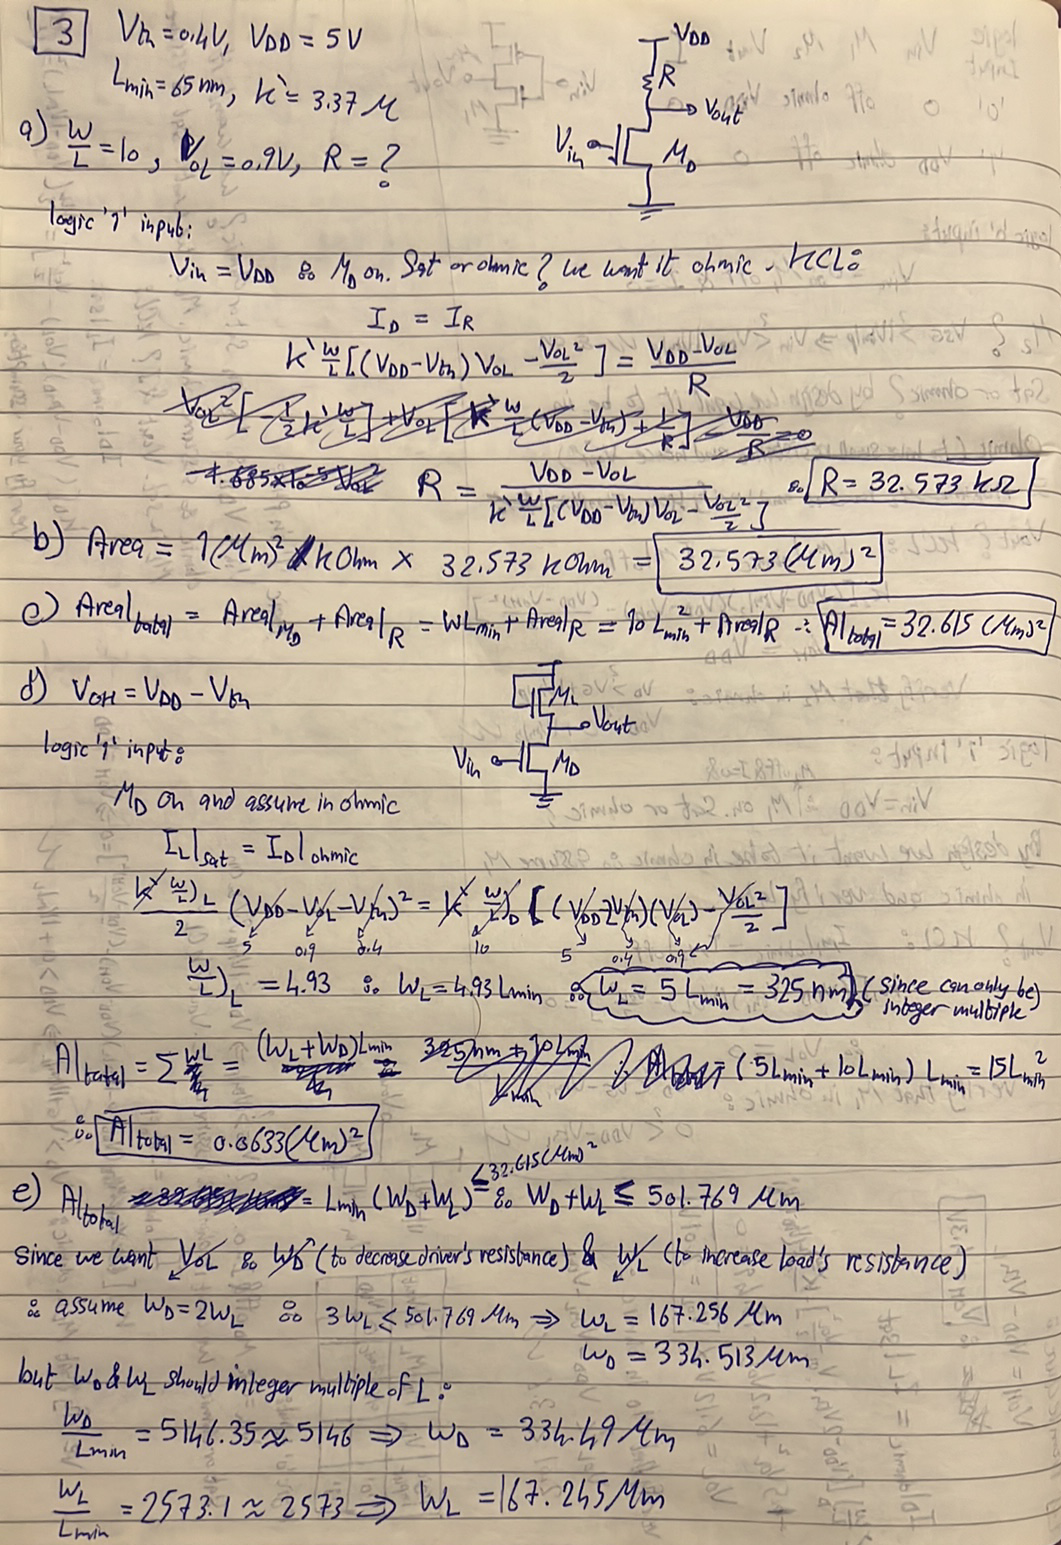 3 Vth = 0.4V, VDD = 5V
Lmin = 65 nm, k` = 3.37 M
VDD
R
Vout
Vin
MD
a) W/L = 10, VOL = 0.9V, R = ?
logic '1' input:
Vin = VDD ∴ MD on. Sat or ohmic? we want it ohmic. KCL:
ID = IR
k` W/L [(VDD-Vth) VOL - VOL²/2] = (VDD-VOL)/R
R = (VDD - VOL) / (k` W/L [(VDD-Vth)VOL - VOL²/2]) ∴ R = 32.573 kΩ
b) Area = 1(Mm)²/kOhm × 32.573 kOhm = 32.573 (Mm)²
c) Area|total = Area|MD + Area|R = WLmin + Area|R = 10 Lmin² + Area|R ∴ A|total = 32.615 (Mm)²
d) VOH = VDD - Vth
ML
Vout
Vin
MD
logic '1' input:
MD on and assume in ohmic
IL|sat = ID|ohmic
k` W/L)L / 2 (VDD - VOL - Vth)² = k` W/L)D [(VDD-Vth)(VOL) - VOL²/2]
5 0.9 0.4 10 5 0.4 0.9
W/L)L = 4.93 ∴ WL = 4.93 Lmin ∴ WL = 5 Lmin = 325 nm (since can only be integer multiple)
A|total = Σ WL = (WL + WD)Lmin = (5Lmin + 10Lmin) Lmin = 15Lmin²
∴ A|total = 0.0633(Mm)²
e) A|total = Lmin (WD + WL) ≤ 32.615(Mm)² ∴ WD + WL ≤ 501.769 Mm
Since we want VOL ↙ ∴ WD ↗ (to decrease driver's resistance) & WL ↙ (to increase load's resistance)
∴ assume WD = 2WL ∴ 3WL ≤ 501.769 Mm ⇒ WL = 167.256 Mm
WD = 334.513 Mm
but WD & WL should integer multiple of L:
WD/Lmin = 5146.35 ≈ 5146 ⇒ WD = 334.49 Mm
WL/Lmin = 2573.1 ≈ 2573 ⇒ WL = 167.245 Mm